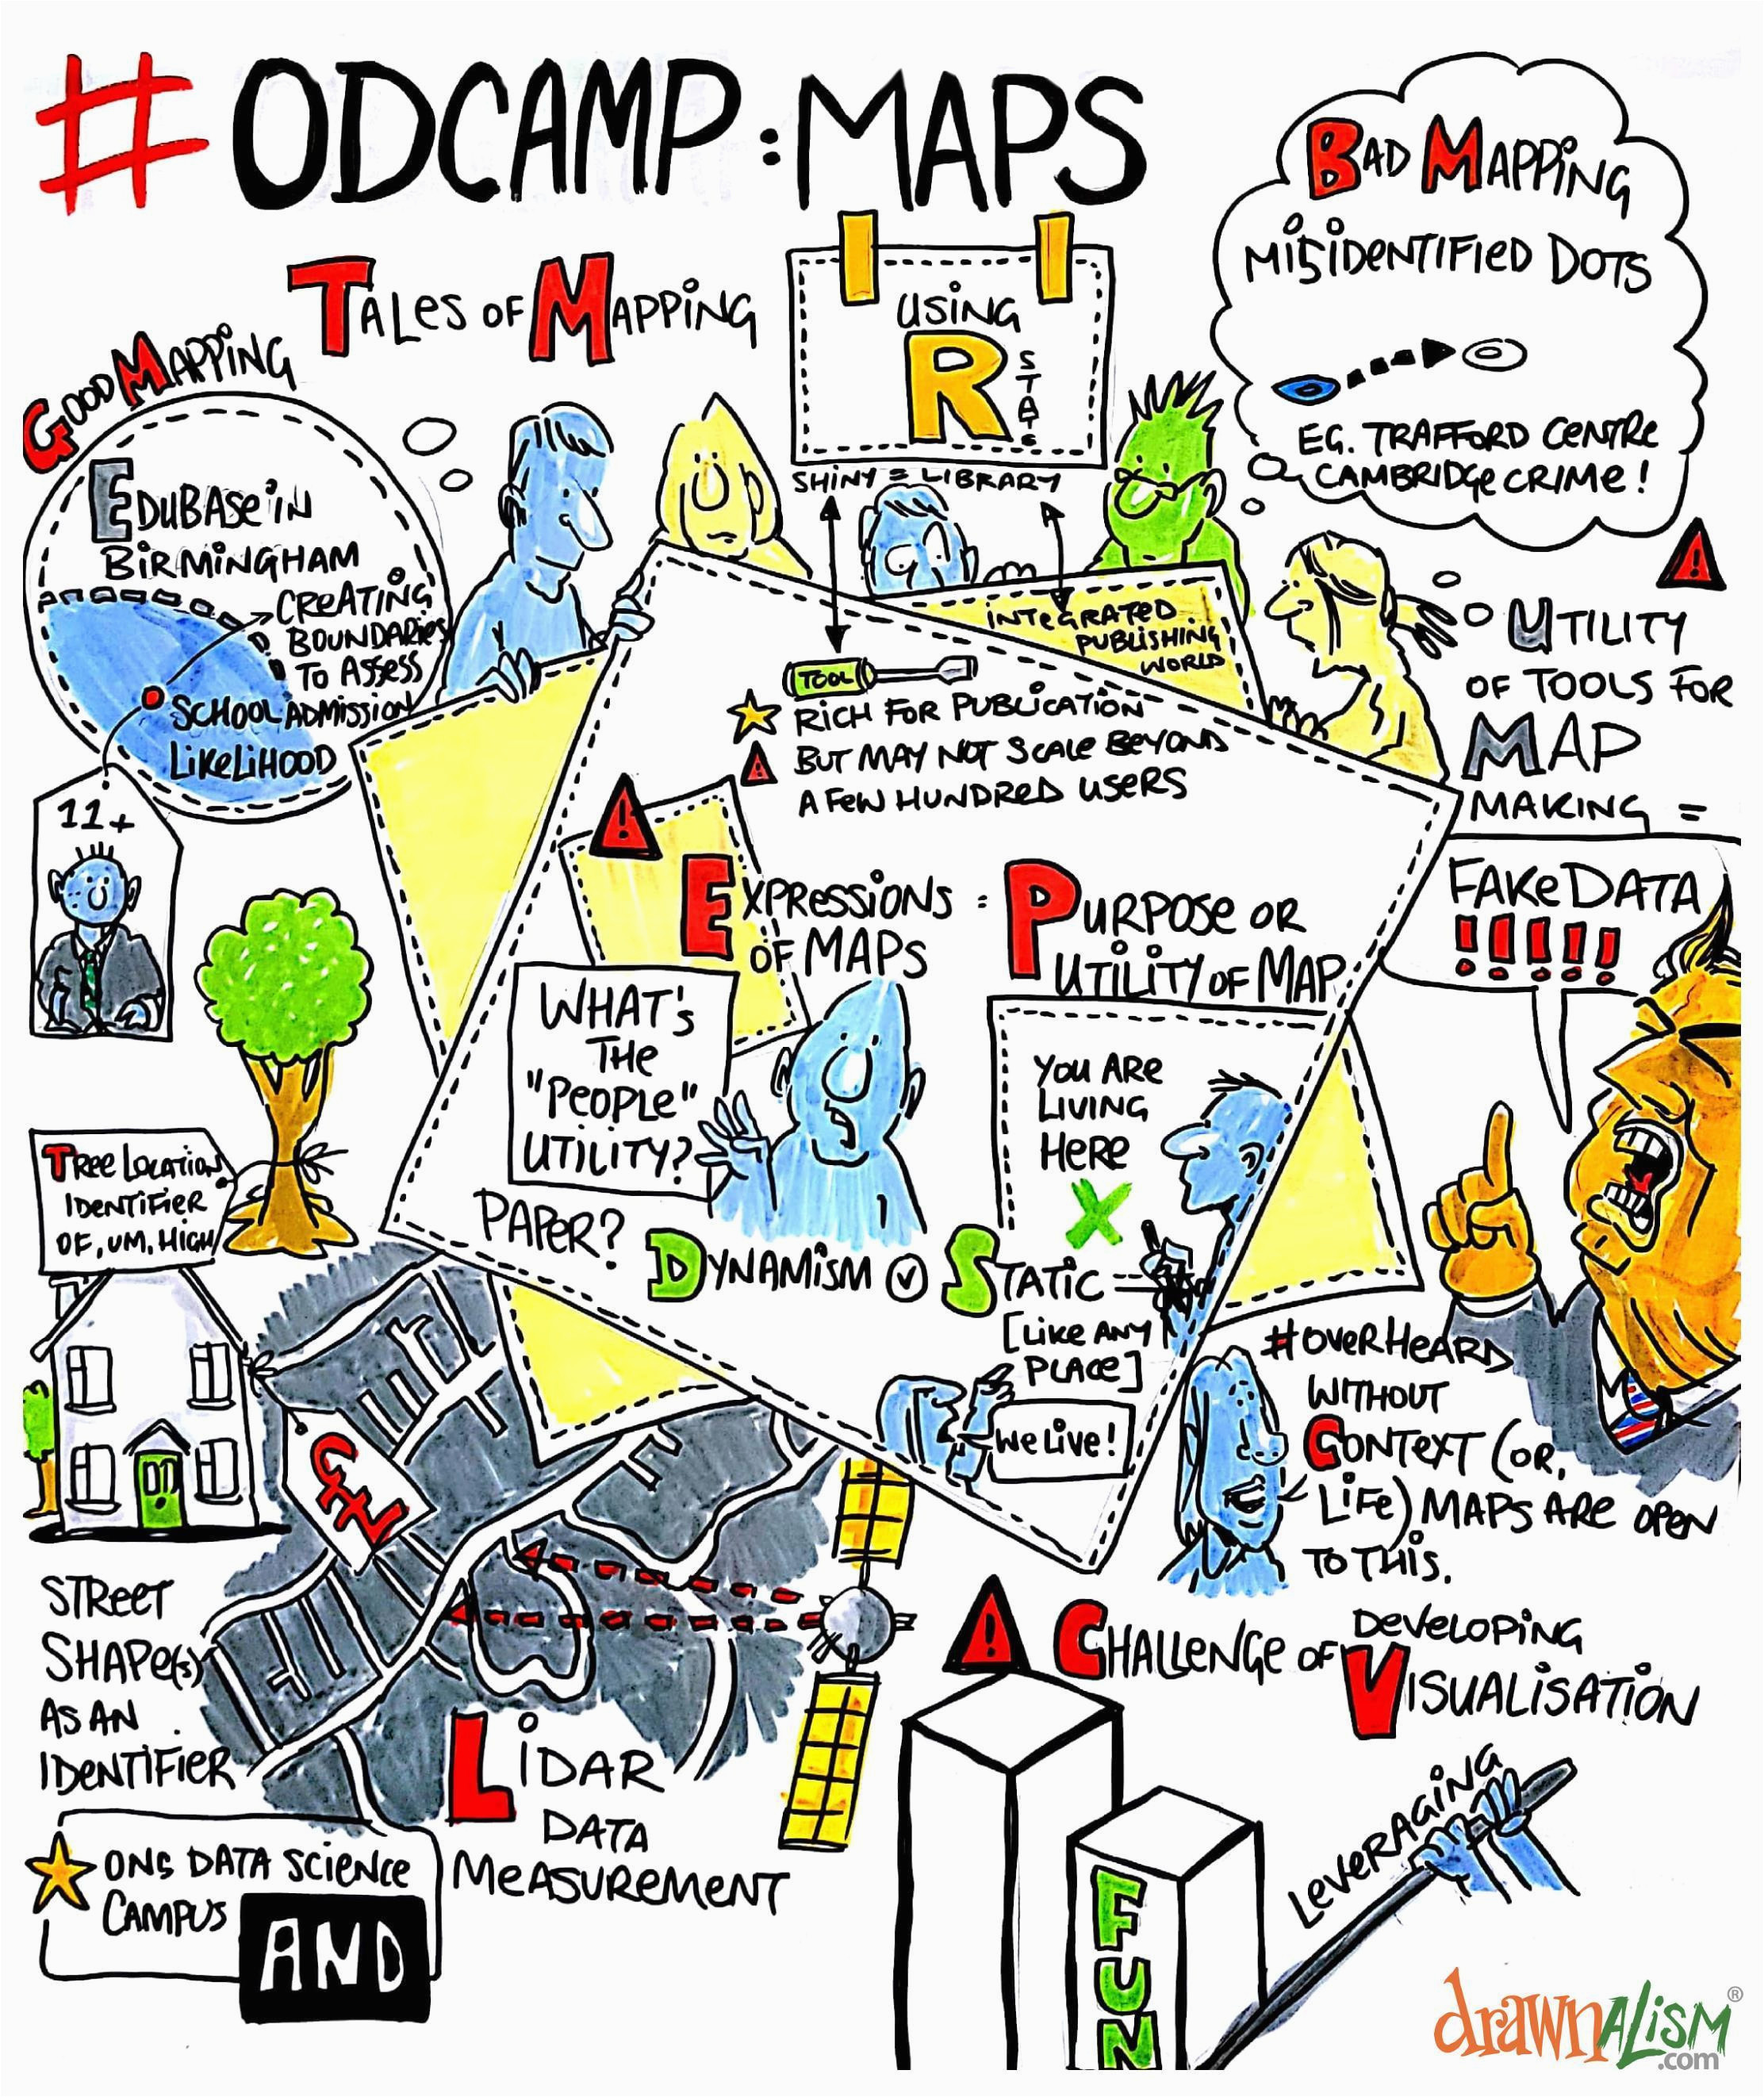 #ODCAMP:MAPS
TALES OF MAPPING
GOOD MAPPING
EDUBASE IN
BIRMINGHAM
CREATING
BOUNDARIES
TO ASSESS
SCHOOL ADMISSION
LIKELIHOOD
11+
USING
R
STATS
SHINY = LIBRARY
INTEGRATED
PUBLISHING
WORLD
TOOL
RICH FOR PUBLICATION
BUT MAY NOT SCALE BEYOND
A FEW HUNDRED USERS
BAD MAPPING
MISIDENTIFIED DOTS
EG. TRAFFORD CENTRE
CAMBRIDGE CRIME!
!
UTILITY
OF TOOLS FOR
MAP
MAKING =
FAKE DATA
!!!!!
!
EXPRESSIONS =
OF MAPS
PURPOSE OR
UTILITY OF MAP
WHAT'S
THE
"PEOPLE"
UTILITY?
PAPER?
YOU ARE
LIVING
HERE
X
DYNAMISM V STATIC =
[LIKE ANY
PLACE]
WE LIVE!
#OVERHEARD
WITHOUT
CONTEXT (OR,
LIFE) MAPS ARE OPEN
TO THIS.
TREE LOCATION
IDENTIFIER
OF, UM, HIGH
££
STREET
SHAPE(S)
AS AN
IDENTIFIER
ONS DATA SCIENCE
CAMPUS
AND
LIDAR
DATA
MEASUREMENT
!
CHALLENGE OF DEVELOPING
VISUALISATION
LEVERAGING
FUN
drawnALISM®
.com